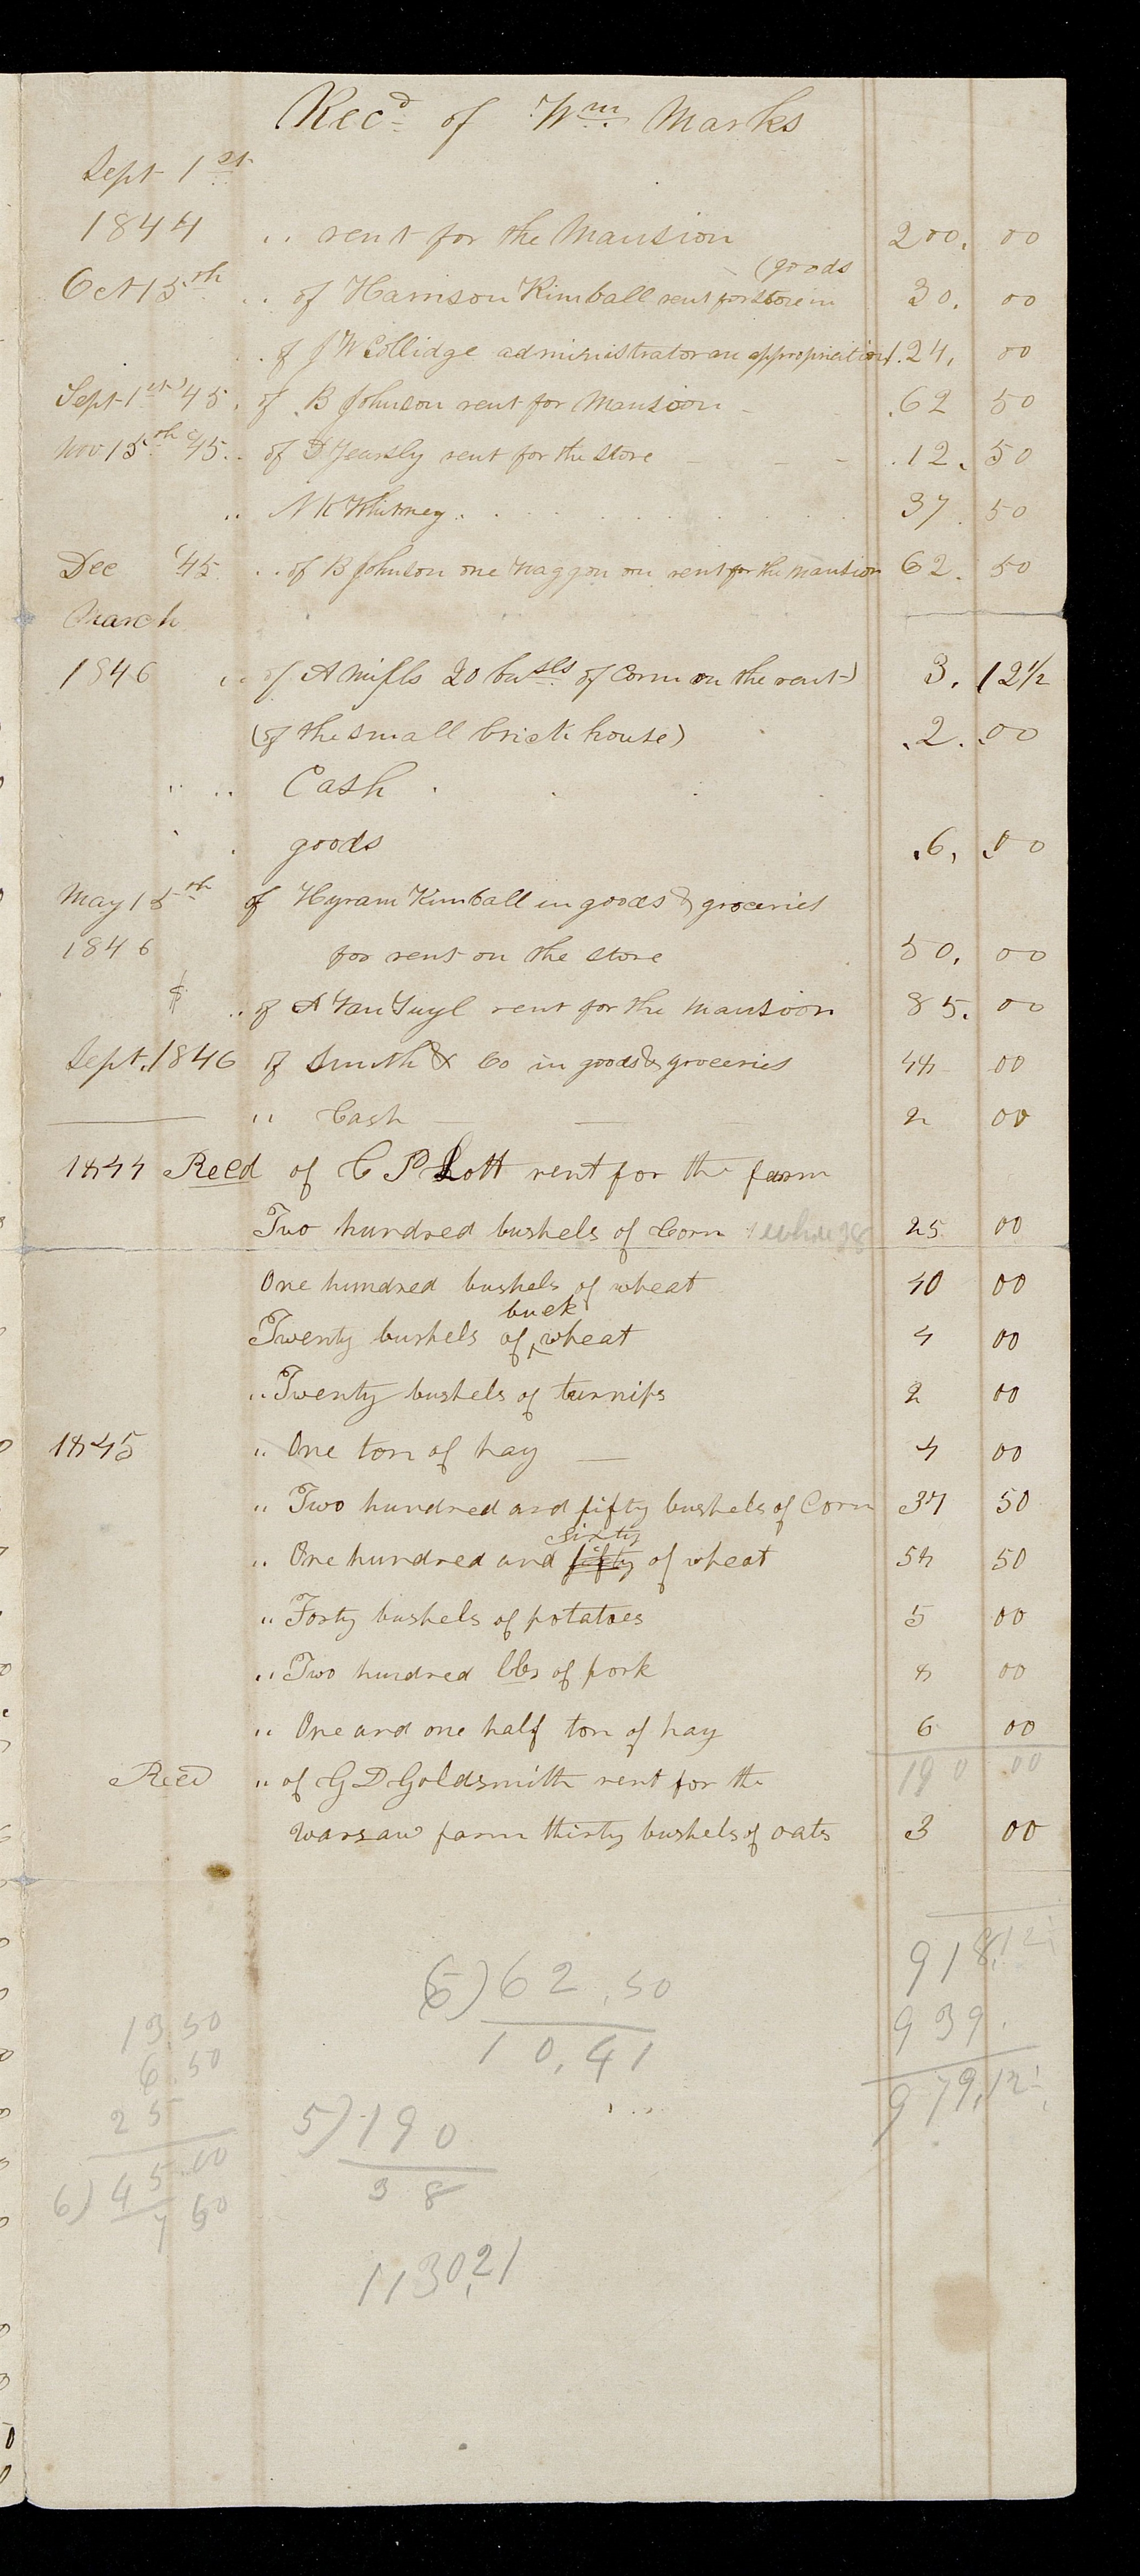 Recd of Wm Marks
Sept 1st
1844 " rent for the Mansion 200. 00
(goods
Oct 15th " of Harrison Kimball rent for store in 30. 00
" of J W Collidge administrator an appropriation 124, 00
Sept 1st '45 " of B Johnson rent for Mansion 62 50
Nov 15th '45 " of D Yearsly rent for the store 12. 50
" N K Whitney 37. 50
Dec '45 " of B Johnson one Waggon on rent for the Mansion 62. 50
March
1846 " of A Mifls 20 busls of Corn on the rent) 3. 12½
(of the small brick house) .2. .00
" " Cash
" " goods .6, .00
May 15th of Hyram Kimball in goods & groceries
1846 for rent on the store 50, 00
$ " of A Van Tuyl rent for the mansion 85. 00
Sept. 1846 of Smith & Co in goods & groceries 48 00
" Cash 2 00
1844 Recd of C P Lott rent for the farm
Two hundred bushels of Corn 25 00
One hundred bushels of wheat 40 00
buck
Twenty bushels of ^ wheat 4 00
" Twenty bushels of turnips 2 00
1845 " One ton of hay 4 00
" Two hundred and fifty bushels of Corn 37 50
sixty
" One hundred and fifty of wheat 58 50
" Forty bushels of potatoes 5 00
" Two hundred lbs of pork 8 00
" One and one half ton of hay 6 00
190 00
Recd " of G D Goldsmith rent for the
Warsaw farm thirty bushels of oats 3 00
918,12
6) 62.50
10,41
939.
979,12
13.50
6.50
25
45.00
6) 7 50
5) 190
38
1130,21